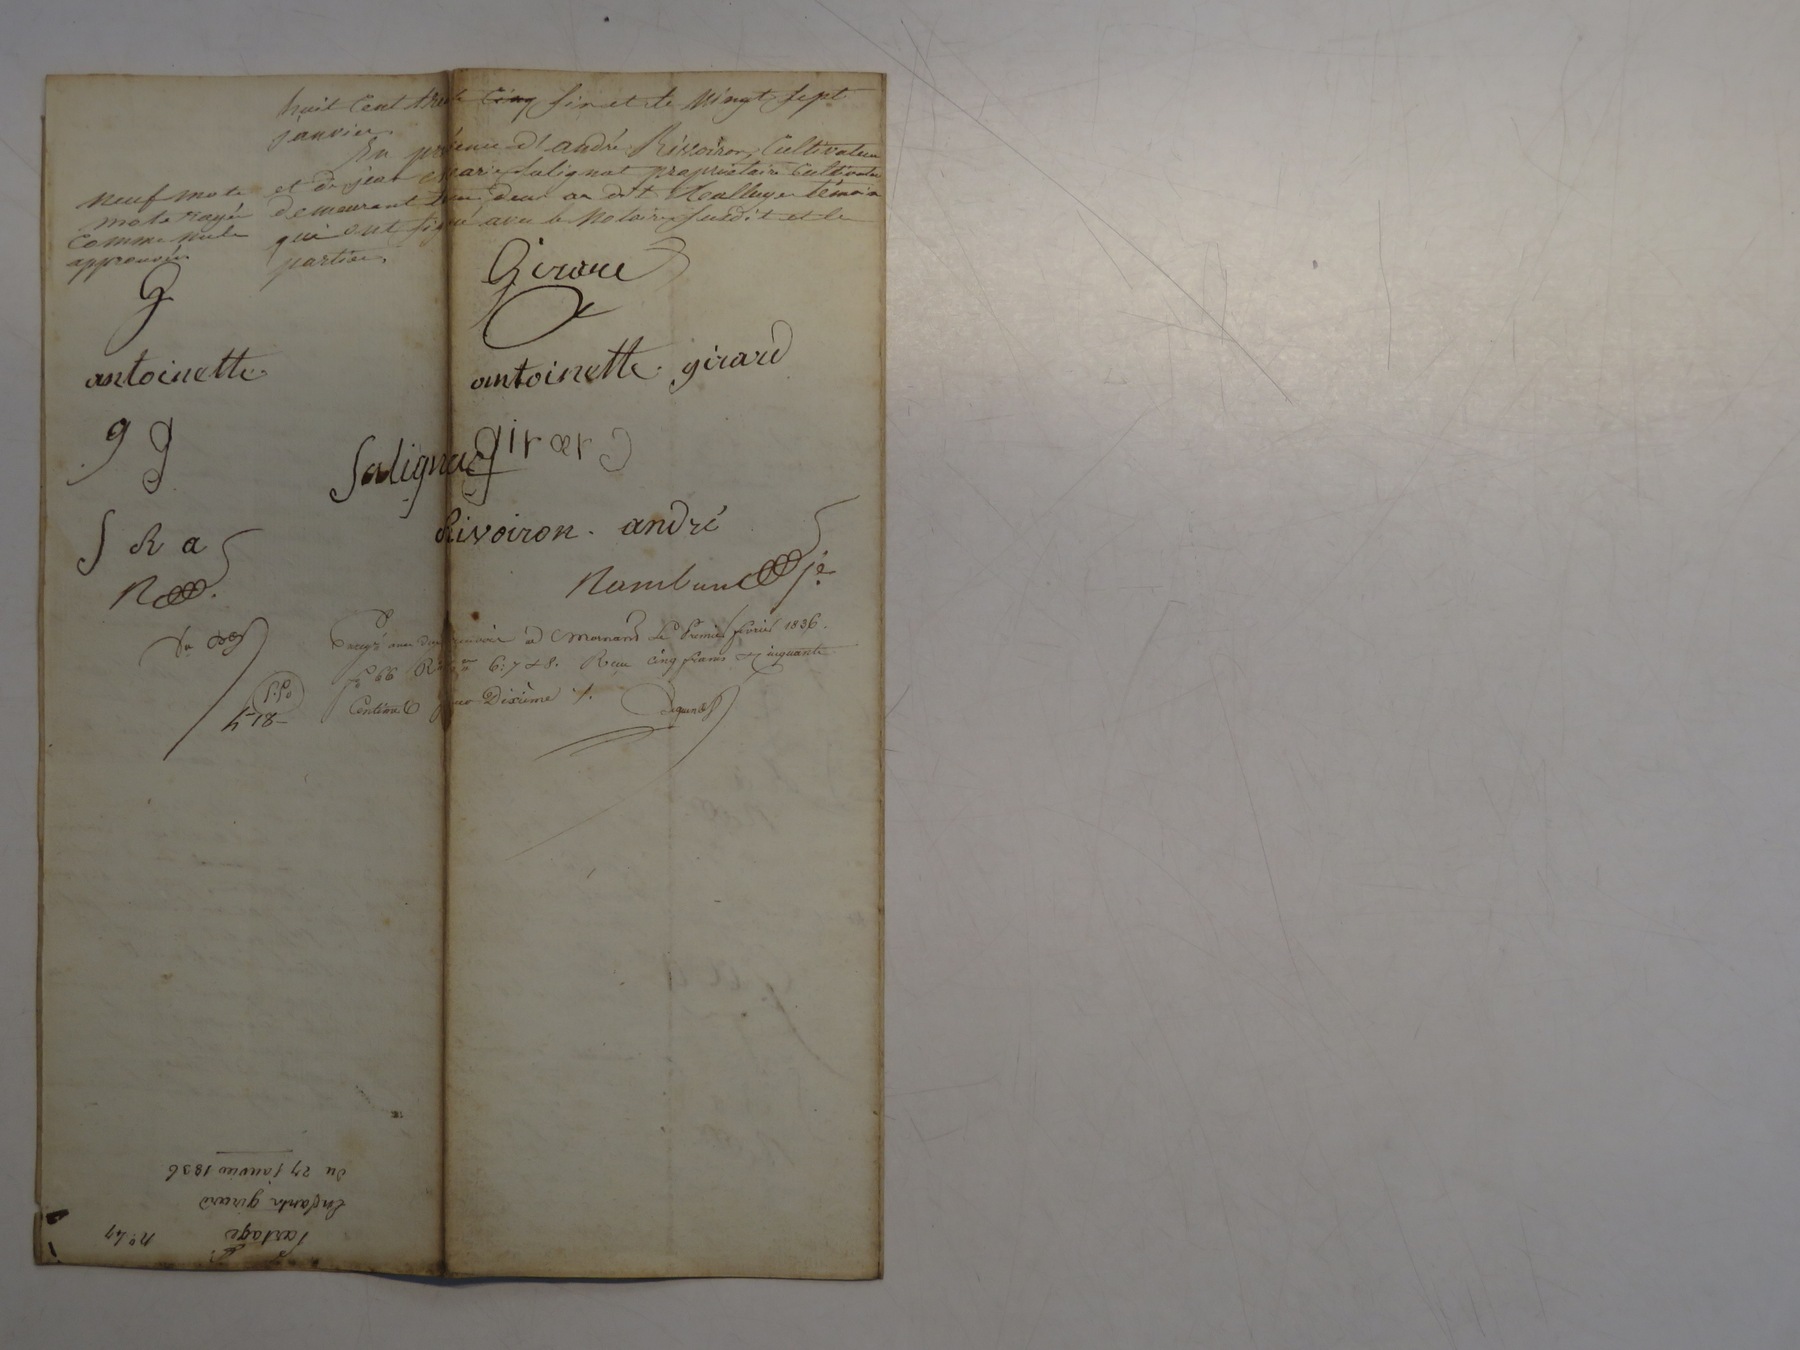 huit cent trente cinq six et le vingt sept
janvier.
En présence d'andré Rivoiron, Cultivateur
et de jean marie Salignat propriétaire Cultivateur
demeurant tous deux au dit témoin
qui ont signé avec le Notaire susdit et le
parties.
neuf mots
mots rayés
comme nuls
approuvés
G
Girard
antoinette.
antoinette. girard
g g
Salignat girard
S R a
Rivoiron. andré
N
je
Enregistré à mornant Le Premier février 1836.
fo 66 Ro 6: 7 & 8. Reçu cinq francs cinquante
Centimes pour Dixième
5.50
18
n° 47
Partage
Enfants girard
du 27 janvier 1836